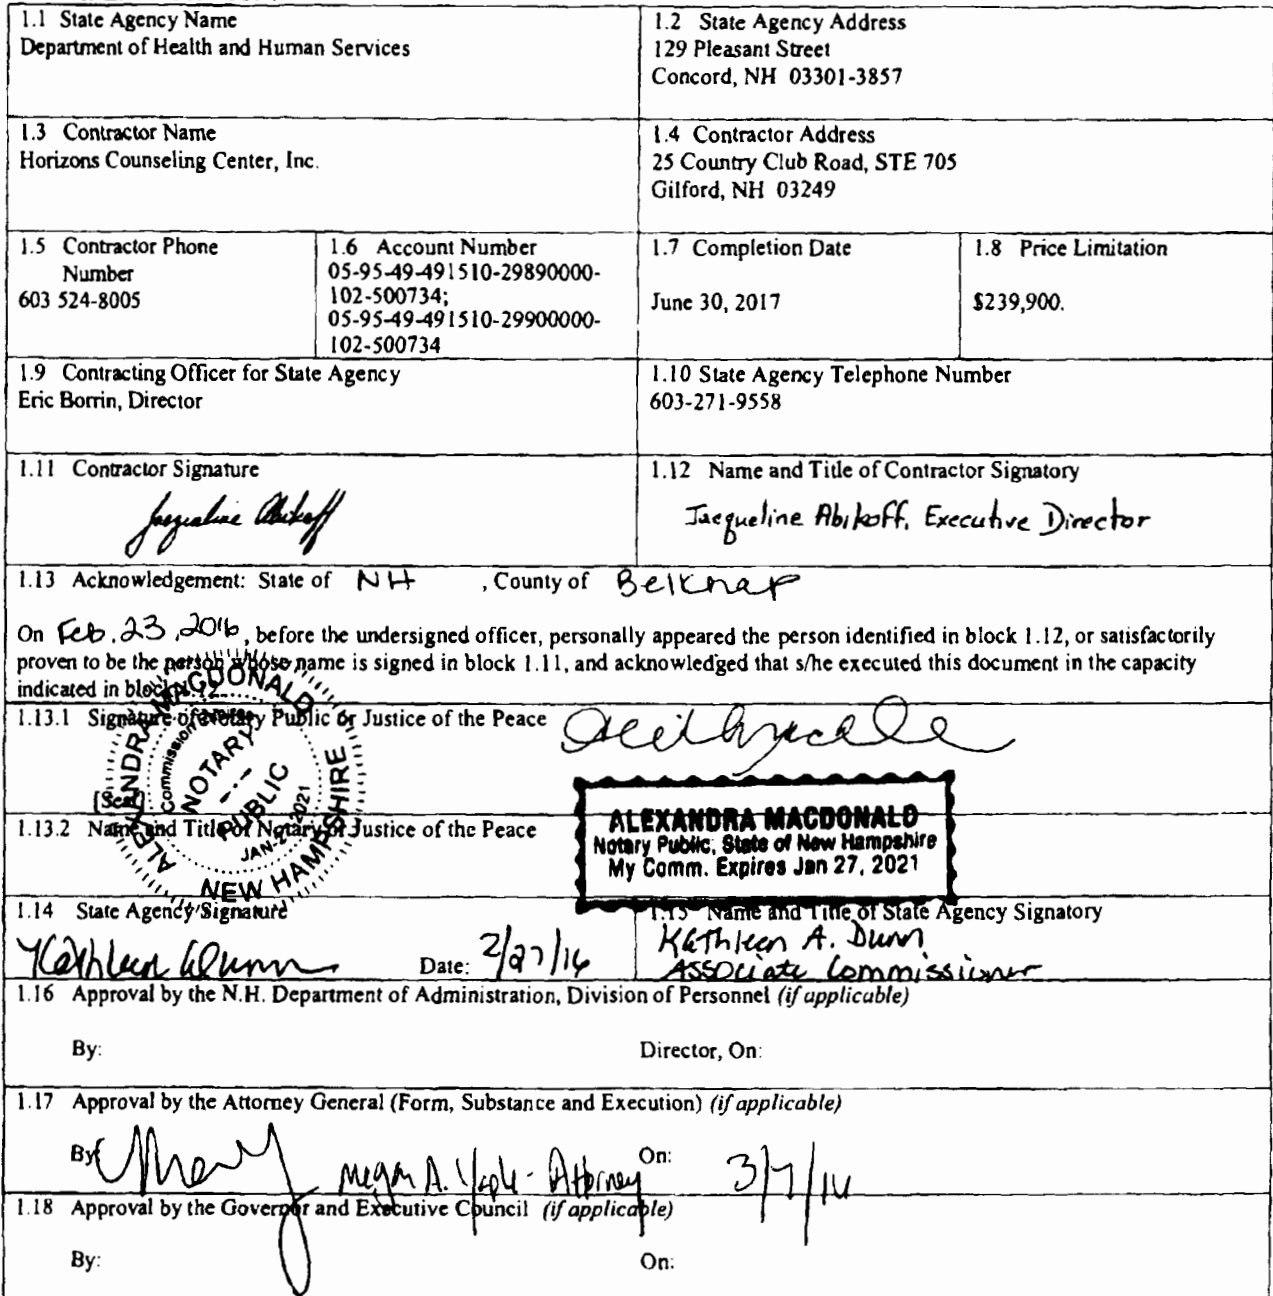 1.1 State Agency Name
Department of Health and Human Services
1.2 State Agency Address
129 Pleasant Street
Concord, NH 03301-3857
1.3 Contractor Name
Horizons Counseling Center, Inc.
1.4 Contractor Address
25 Country Club Road, STE 705
Gilford, NH 03249
1.5 Contractor Phone
Number
603 524-8005
1.6 Account Number
05-95-49-491510-29890000-
102-500734;
05-95-49-491510-29900000-
102-500734
1.7 Completion Date
June 30, 2017
1.8 Price Limitation
$239,900.
1.9 Contracting Officer for State Agency
Eric Borrin, Director
1.10 State Agency Telephone Number
603-271-9558
1.11 Contractor Signature
Jacqueline Abikoff
1.12 Name and Title of Contractor Signatory
Jacqueline Abikoff, Executive Director
1.13 Acknowledgement: State of NH , County of Belknap
On Feb. 23, 2016, before the undersigned officer, personally appeared the person identified in block 1.12, or satisfactorily
proven to be the person whose name is signed in block 1.11, and acknowledged that s/he executed this document in the capacity
indicated in block 1.12.
1.13.1 Signature of Notary Public or Justice of the Peace
[Seal]
ALEXANDRA MACDONALD
Commission Expires
NOTARY
PUBLIC
JAN. 27, 2021
NEW HAMPSHIRE
1.13.2 Name and Title of Notary or Justice of the Peace
ALEXANDRA MACDONALD
Notary Public, State of New Hampshire
My Comm. Expires Jan 27, 2021
1.14 State Agency Signature
Kathleen Dunn Date: 2/27/16
1.15 Name and Title of State Agency Signatory
Kathleen A. Dunn
Associate Commissioner
1.16 Approval by the N.H. Department of Administration, Division of Personnel (if applicable)
By: Director, On:
1.17 Approval by the Attorney General (Form, Substance and Execution) (if applicable)
By: Megan A. - Attorney On: 3/7/16
1.18 Approval by the Governor and Executive Council (if applicable)
By: On: